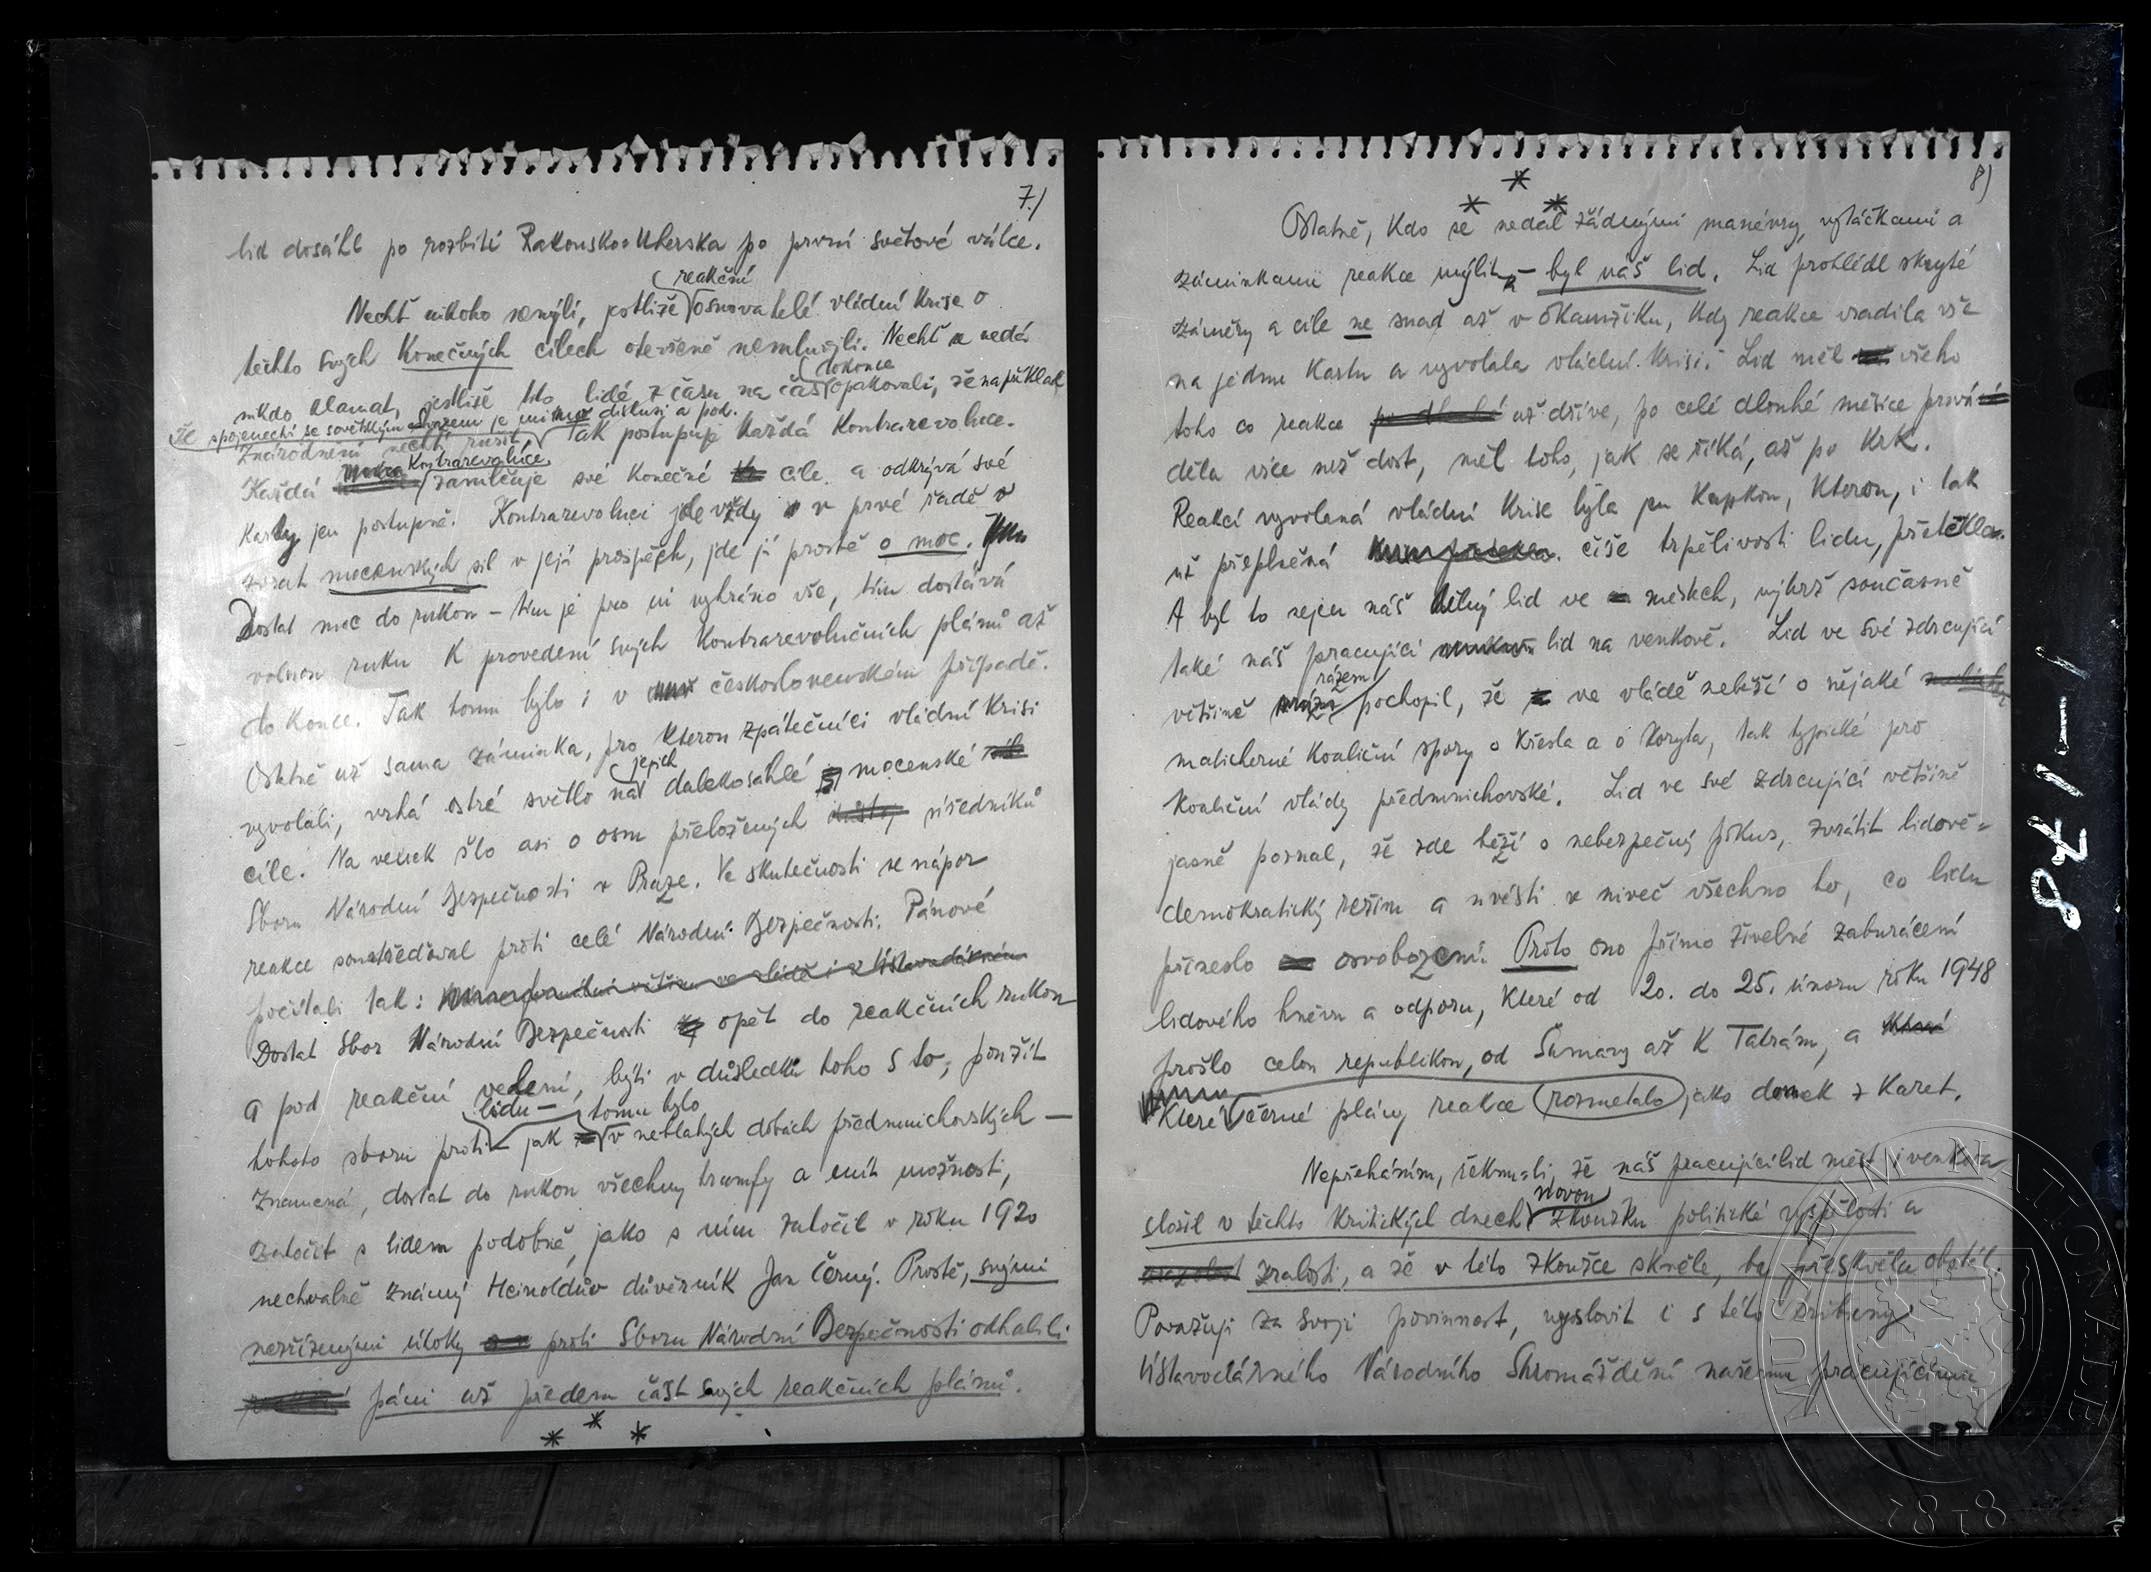 7./
lid dosáhl po rozbití Rakousko-Uherska po první světové válce.
reakční
Nechť nikoho nemýlí, jestliže osnovatelé vládní krise o
těchto svých konečných cílech otevřeně nemluvili. Nechť se nedá
dokonce
nikdo klamat, jestliže tito lidé z času na čas opakovali, že například
že spojenectví se sovětským svazem je mimo diskusi a pod.
znárodnění nechtí rušit, Tak postupuje každá kontrarevoluce.
kontrarevoluce
Každá zamlčuje své konečné cíle a odkrývá své
karty jen postupně. Kontrarevoluci jde vždy v prvé řadě o
zvrat mocenských sil v její prospěch, jde jí prostě o moc.
Dostat moc do rukou – tím je pro ni vyhráno vše, tím dostává
volnou ruku k provedení svých kontrarevolučních plánů až
do konce. Tak tomu bylo i v československém případě.
Ostatně už sama záminka, pro kterou zpátečníci vládní krisi
jejich
vyvolali, vrhá ostré světlo na dalekosáhlé mocenské
cíle. Na venek šlo asi o osm přeložených úředníků
Sboru Národní Bezpečnosti v Praze. Ve skutečnosti se nápor
reakce soustřeďoval proti celé Národní Bezpečnosti. Pánové
počítali tak:
Dostat Sbor Národní Bezpečnosti opět do reakčních rukou
a pod reakční vedení, býti v důsledku toho s to, použít
lidu – tomu bylo
tohoto sboru proti jak v neblahých dobách předmnichovských –
znamená, dostat do rukou všechny trumfy a míti možnosti,
zatočit s lidem podobně, jako s ním zatočil v roku 1920
nechvalně známý Heinoldův důvěrník Jan Černý. Prostě, svými
nezřízenými útoky proti Sboru Národní Bezpečnosti odhalili
páni už předem část svých reakčních plánů.
* * *
8)
* * *
Ostatně, kdo se nedal žádnými manévry, vytáčkami a
záminkami reakce mýlit – byl náš lid. Lid prohlédl skryté
záměry a cíle ne snad až v okamžiku, kdy reakce vsadila vše
na jednu kartu a vyvolala vládní krisi. Lid měl všeho
toho co reakce už dříve, po celé dlouhé měsíce prová-
děla více než dost, měl toho, jak se říká, až po krk.
Reakcí vyvolaná vládní krise byla jen kapkou, kterou, i tak
už přeplněná číše trpělivosti lidu, přetekla.
A byl to nejen náš dělný lid ve městech, nýbrž současně
také náš pracující lid na venkově. Lid ve své zdrcující
rázem
většině pochopil, že ve vládě neběží o nějaké
malicherné koaliční spory o křesla a o koryta, tak typické pro
koaliční vlády předmnichovské. Lid ve své zdrcující většině
jasně poznal, že zde běží o nebezpečný pokus, zvrátit lidově-
demokratický režim a uvésti v niveč všechno to, co lidu
přineslo osvobození. Proto ono přímo živelné zaburácení
lidového hněvu a odporu, které od 20. do 25. února roku 1948
prošlo celou republikou, od Šumavy až k Tatrám, a
které černé plány reakce rozmetalo jako domek z karet.
Nepřeháním, řeknu-li, že náš pracující lid měst i venkova
novou
složil v těchto kritických dnech zkoušku politické vyspělosti a
zralosti, a že v této zkoušce skvěle, ba přeskvěle obstál.
Považuji za svoji povinnost, vyslovit i s této tribuny
Ústavodárného Národního Shromáždění našemu pracujícímu
84-1-1
MUSEUM NATIONALE
1818